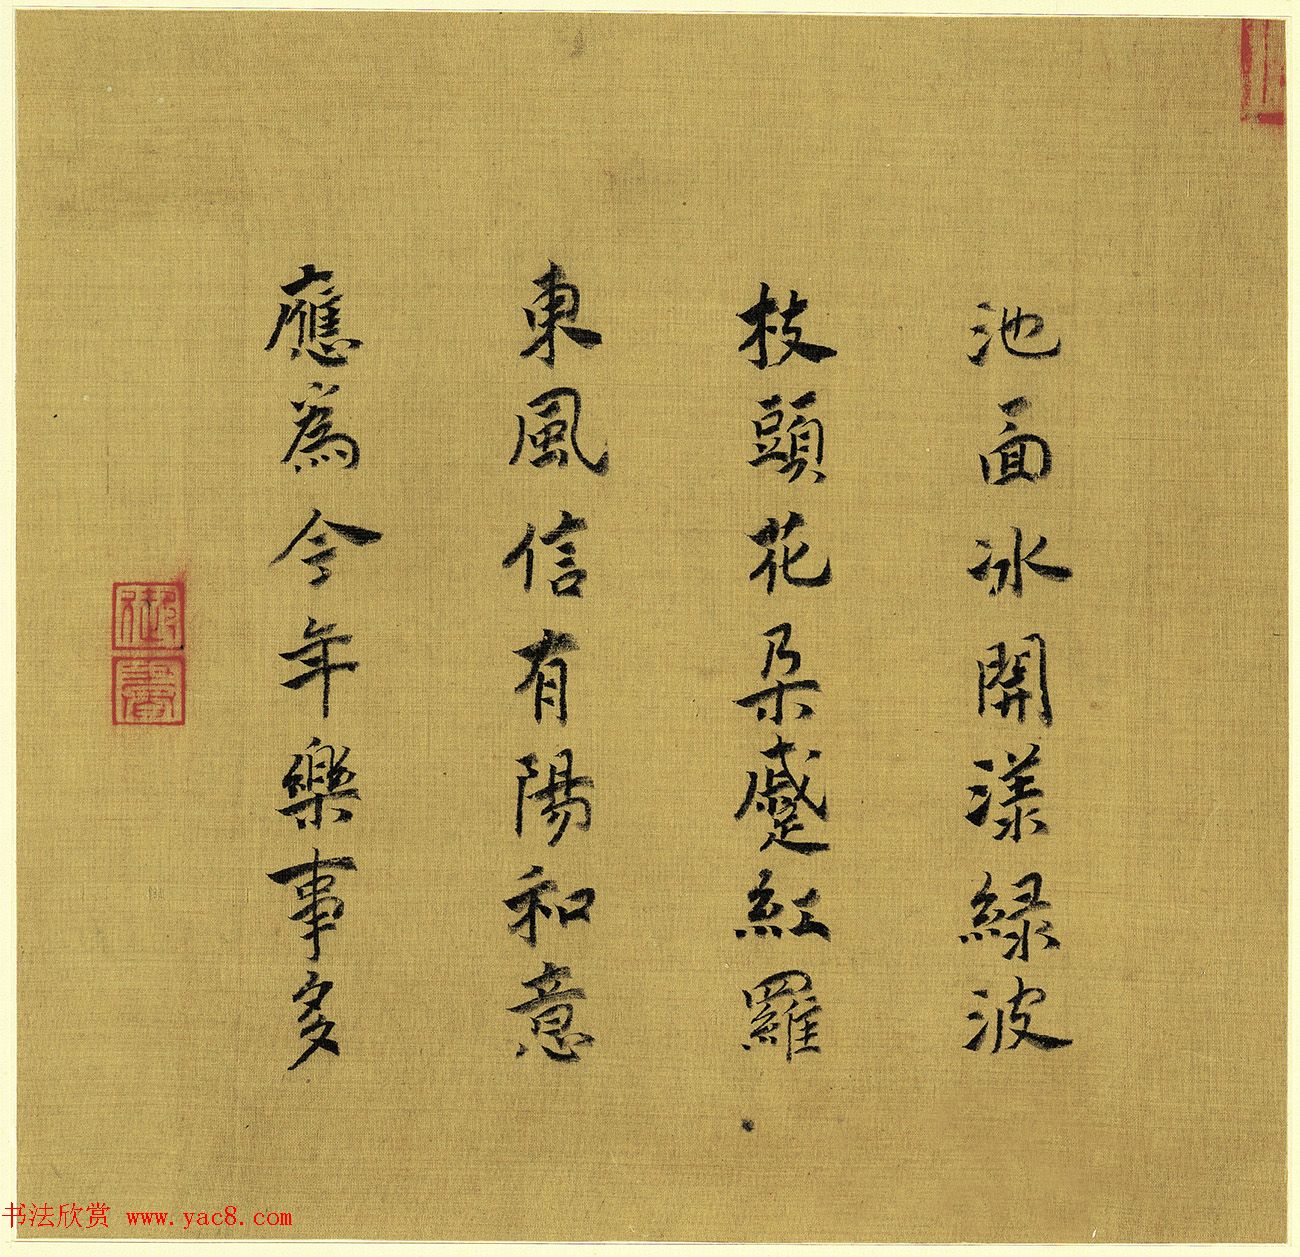 池面冰開漾綠波
枝頭花朵蹙紅羅
東風信有陽和意
應為今年樂事多
御書
书法欣赏 www.yac8.com